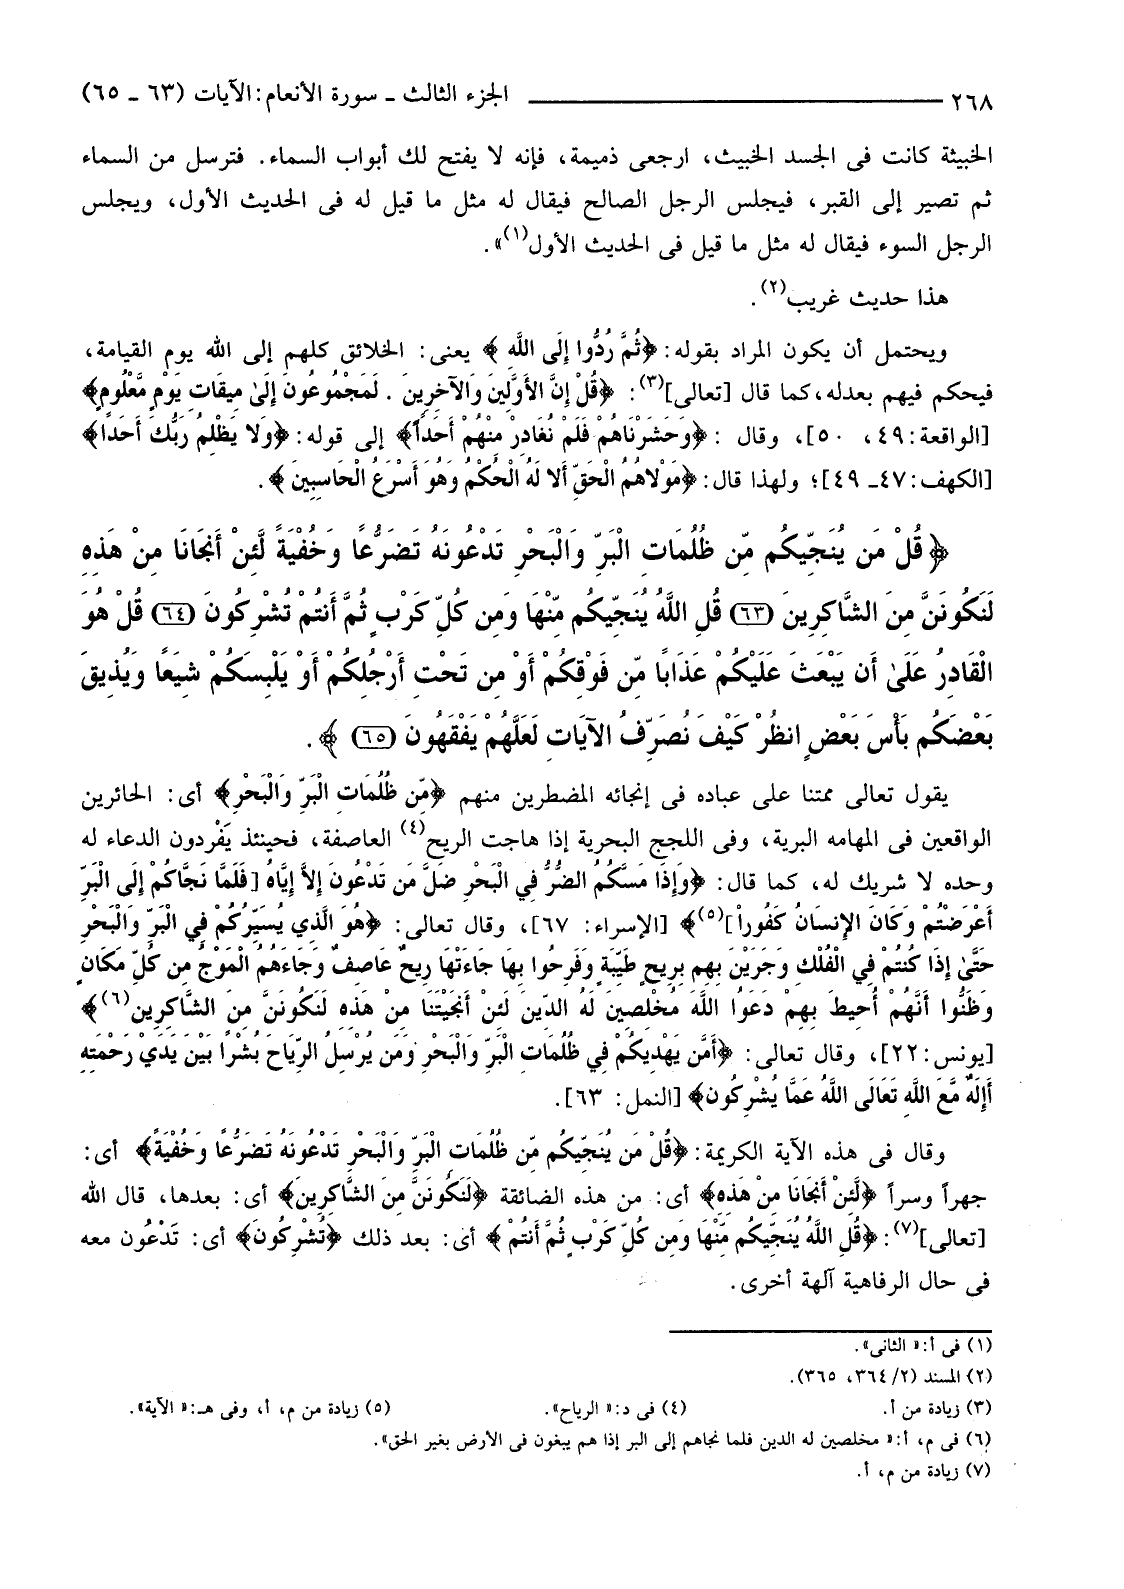 ٢٦٨ ــــــــــــــــ الجزء الثالث ـ سورة الأنعام: الآيات (٦٣ ـ ٦٥)
الخبيثة كانت فى الجسد الخبيث، ارجعى ذميمة، فإنه لا يفتح لك أبواب السماء. فترسل من السماء
ثم تصير إلى القبر، فيجلس الرجل الصالح فيقال له مثل ما قيل له فى الحديث الأول، ويجلس
الرجل السوء فيقال له مثل ما قيل فى الحديث الأول(١)».
هذا حديث غريب(٢).
ويحتمل أن يكون المراد بقوله: ﴿ثُمَّ رُدُّوا إِلَى اللَّهِ﴾ يعنى: الخلائق كلهم إلى الله يوم القيامة،
فيحكم فيهم بعدله، كما قال [تعالى](٣): ﴿قُلْ إِنَّ الأَوَّلِينَ وَالآخِرِينَ . لَمَجْمُوعُونَ إِلَىٰ مِيقَاتِ يَوْمٍ مَّعْلُومٍ﴾
[الواقعة:٤٩، ٥٠]، وقال : ﴿وَحَشَرْنَاهُمْ فَلَمْ نُغَادِرْ مِنْهُمْ أَحَدًا﴾ إلى قوله: ﴿وَلا يَظْلِمُ رَبُّكَ أَحَدًا﴾
[الكهف:٤٧ـ ٤٩]؛ ولهذا قال: ﴿مَوْلاهُمُ الْحَقِّ أَلا لَهُ الْحُكْمُ وَهُوَ أَسْرَعُ الْحَاسِبِينَ﴾.
﴿قُلْ مَن يُنَجِّيكُم مِّن ظُلُمَاتِ الْبَرِّ وَالْبَحْرِ تَدْعُونَهُ تَضَرُّعًا وَخُفْيَةً لَّئِنْ أَنجَانَا مِنْ هَذِهِ
لَنَكُونَنَّ مِنَ الشَّاكِرِينَ (٦٣) قُلِ اللَّهُ يُنَجِّيكُم مِّنْهَا وَمِن كُلِّ كَرْبٍ ثُمَّ أَنتُمْ تُشْرِكُونَ (٦٤) قُلْ هُوَ
الْقَادِرُ عَلَىٰ أَن يَبْعَثَ عَلَيْكُمْ عَذَابًا مِّن فَوْقِكُمْ أَوْ مِن تَحْتِ أَرْجُلِكُمْ أَوْ يَلْبِسَكُمْ شِيَعًا وَيُذِيقَ
بَعْضَكُم بَأْسَ بَعْضٍ انظُرْ كَيْفَ نُصَرِّفُ الآيَاتِ لَعَلَّهُمْ يَفْقَهُونَ (٦٥)﴾.
يقول تعالى ممتنا على عباده فى إنجائه المضطرين منهم ﴿مِّن ظُلُمَاتِ الْبَرِّ وَالْبَحْرِ﴾ أى: الحائرين
الواقعين فى المهامه البرية، وفى اللجج البحرية إذا هاجت الريح(٤) العاصفة، فحينئذ يَفْردون الدعاء له
وحده لا شريك له، كما قال: ﴿وَإِذَا مَسَّكُمُ الضُّرُّ فِي الْبَحْرِ ضَلَّ مَن تَدْعُونَ إِلاَّ إِيَّاهُ [فَلَمَّا نَجَّاكُمْ إِلَى الْبَرِّ
أَعْرَضْتُمْ وَكَانَ الإِنسَانُ كَفُورًا](٥)﴾ [الإسراء: ٦٧]، وقال تعالى: ﴿هُوَ الَّذِي يُسَيِّرُكُمْ فِي الْبَرِّ وَالْبَحْرِ
حَتَّىٰ إِذَا كُنتُمْ فِي الْفُلْكِ وَجَرَيْنَ بِهِم بِرِيحٍ طَيِّبَةٍ وَفَرِحُوا بِهَا جَاءَتْهَا رِيحٌ عَاصِفٌ وَجَاءَهُمُ الْمَوْجُ مِن كُلِّ مَكَانٍ
وَظَنُّوا أَنَّهُمْ أُحِيطَ بِهِمْ دَعَوُا اللَّهَ مُخْلِصِينَ لَهُ الدِّينَ لَئِنْ أَنجَيْتَنَا مِنْ هَذِهِ لَنَكُونَنَّ مِنَ الشَّاكِرِين(٦)﴾
[يونس:٢٢]، وقال تعالى: ﴿أَمَّن يَهْدِيكُمْ فِي ظُلُمَاتِ الْبَرِّ وَالْبَحْرِ وَمَن يُرْسِلُ الرِّيَاحَ بُشْرًا بَيْنَ يَدَيْ رَحْمَتِهِ
أَإِلَهٌ مَّعَ اللَّهِ تَعَالَى اللَّهُ عَمَّا يُشْرِكُون﴾ [النمل: ٦٣].
وقال فى هذه الآية الكريمة: ﴿قُلْ مَن يُنَجِّيكُم مِّن ظُلُمَاتِ الْبَرِّ وَالْبَحْرِ تَدْعُونَهُ تَضَرُّعًا وَخُفْيَةً﴾ أى:
جهراً وسراً ﴿لَّئِنْ أَنجَانَا مِنْ هَذِهِ﴾ أى: من هذه الضائقة ﴿لَنَكُونَنَّ مِنَ الشَّاكِرِينَ﴾ أى: بعدها، قال الله
[تعالى](٧): ﴿قُلِ اللَّهُ يُنَجِّيكُم مِّنْهَا وَمِن كُلِّ كَرْبٍ ثُمَّ أَنتُمْ﴾ أى: بعد ذلك ﴿تُشْرِكُونَ﴾ أى: تَدْعُون معه
فى حال الرفاهية آلهة أخرى.
(١) فى أ: « الثانى».
(٢) المسند (٢/ ٣٦٤، ٣٦٥).
(٣) زيادة من أ. (٤) فى د: « الرياح». (٥) زيادة من م، أ، وفى هـ: « الآية».
(٦) فى م، أ: « مخلصين له الدين فلما نجاهم إلى البر إذا هم يبغون فى الأرض بغير الحق».
(٧) زيادة من م، أ.